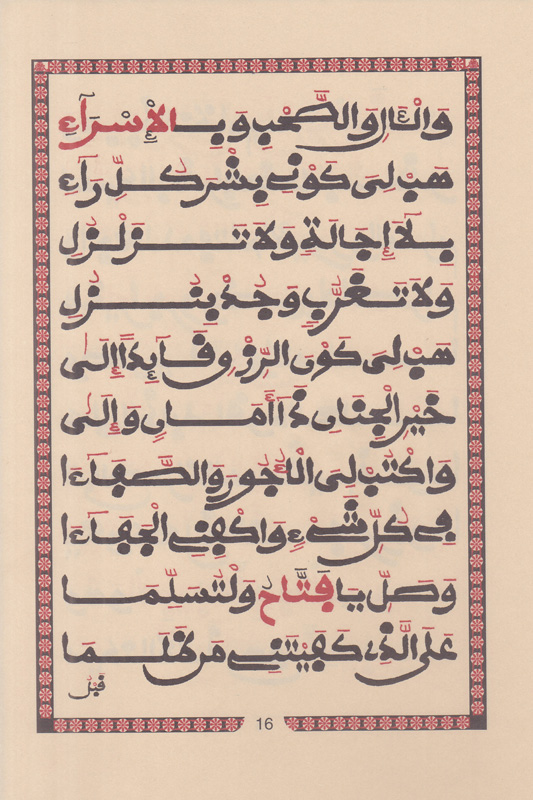 وَالْآلِ وَالصَّحْبِ وَبِالْإِسْرَآءِ
هَبْ لِيَ كَوْنِي بِشْرَ كُلِّ رَآءِ
بِلَا إِجَالَةٍ وَلَا تَزَلْزُلِ
وَلَا تَغَرُّبٍ وَجُدْ بِنُزُلِ
هَبْ لِيَ كَوْنَ الرِّزْقِ قَآئِدًا إِلَى
خَيْرِ الْجِنَانِ ذَآ أَمَانٍ وَإِلَى
وَاكْتُبْ لِيَ الْأُجُورَ وَالصَّفَآءَا
فِي كُلِّ شَيْءٍ وَاكْفِنِي الْجَفَآءَا
وَصَلِّ يَا فَتَّاحُ وَلْتُسَلِّمَا
عَلَى الَّذِي كَفَيْتَنِي مَن ظَلَمَا
قَبْلُ
16